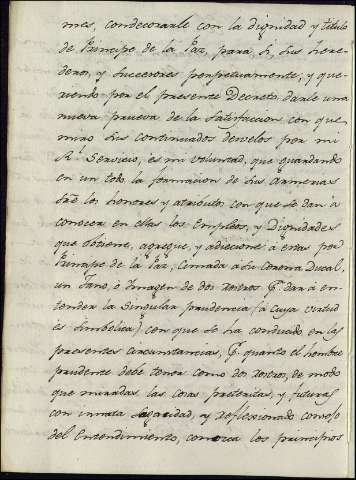 mes, condecorarle con la dignidad y titulo
de Principe de la Paz, para sí, sus here-
deros, y succesores perpetuamente; y que-
riendo por el presente Decreto darle una
nueva prueva de la satisfaccion con que
miro sus continuados desvelos por mi
Rl. Servicio, es mi voluntad, que guardando
en un todo la formacion de sus Armerias
los honores y atributos con que se dan á
conocer en ellas los Empleos, y Dignidades
que obtiene, agregue, y adiccione á estas por
Principe de la Paz, cimada á su corona Ducal,
un Jano, ó Imagen de dos rostros qe. dará á en-
tender la singular prudencia (á cuya virtud
es simbolica) con que se ha conducido en las
presentes circunstancias, qe. quanto el hombre
prudente debe tener como dos rostros, de modo
que miradas las cosas preteritas, y futuras
con innata sagacidad, y reflexionado consejo
del Entendimiento, conozca los principios